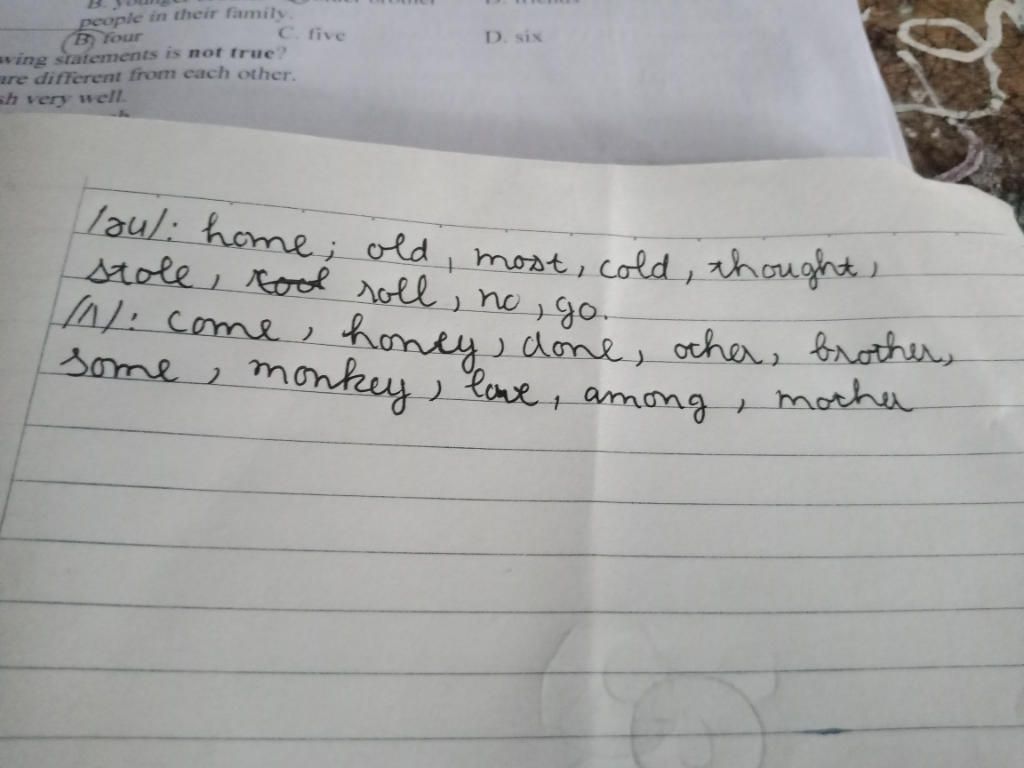 people in their family.
B. four C. five D. six
wing statements is not true?
are different from each other.
sh very well.
/əu/: home; old, most, cold, thought,
stole, roll, no, go.
/ʌ/: come, honey, done, other, brother,
some, monkey, love, among, mother